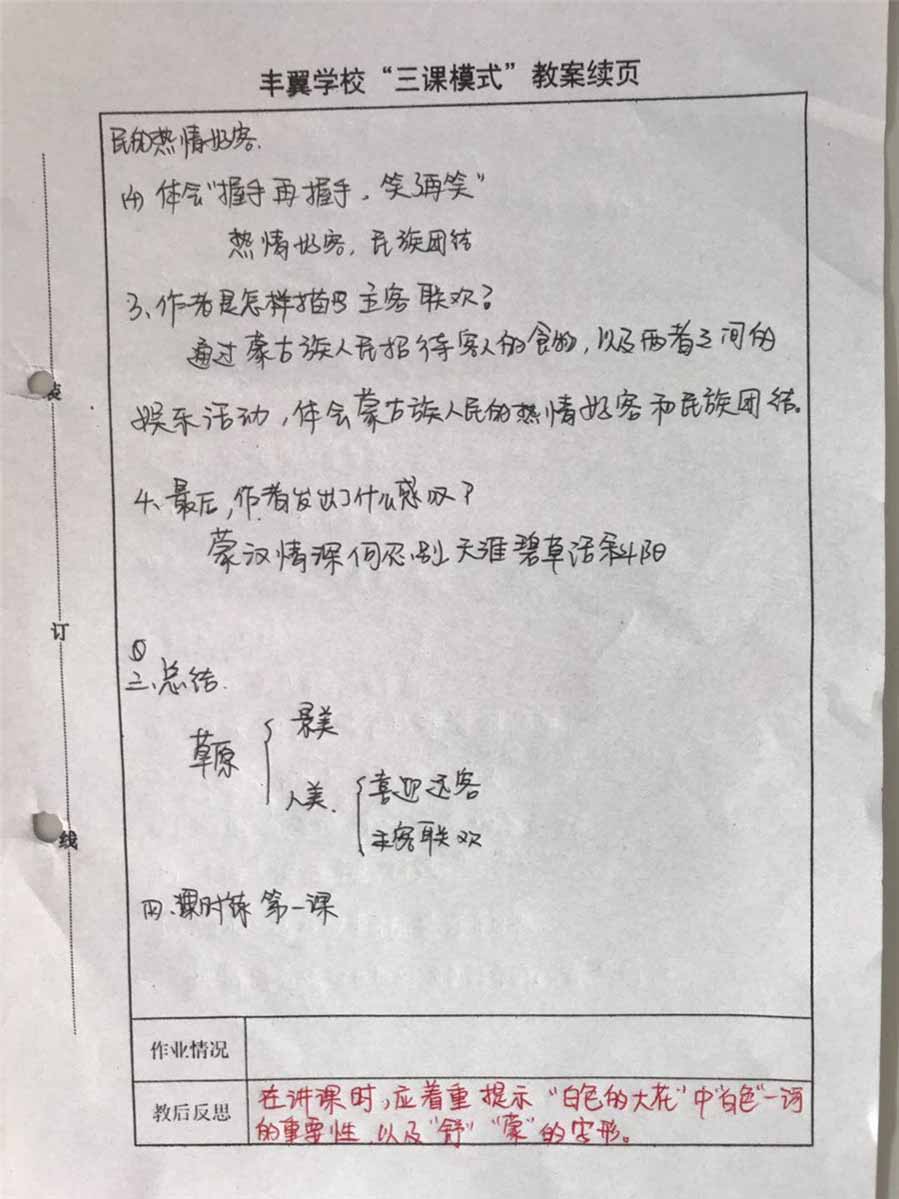 丰翼学校“三课模式”教案续页
民的热情好客.
(4) 体会“握手再握手，笑了再笑”
热情好客，民族团结
3、作者是怎样描写主客联欢？
通过蒙古族人民招待客人的食物，以及两者之间的
娱乐活动，体会蒙古族人民的热情好客和民族团结。
4、最后，作者发出了什么感叹？
蒙汉情深何忍别 天涯碧草话斜阳
三、总结.
草原
景美
人美.
喜迎远客
主客联欢
四、课时练 第一课
装
订
线
作业情况
教后反思
在讲课时，应着重提示“白色的大花”中“白色”一词
的重要性，以及“舒”“蒙”的字形。